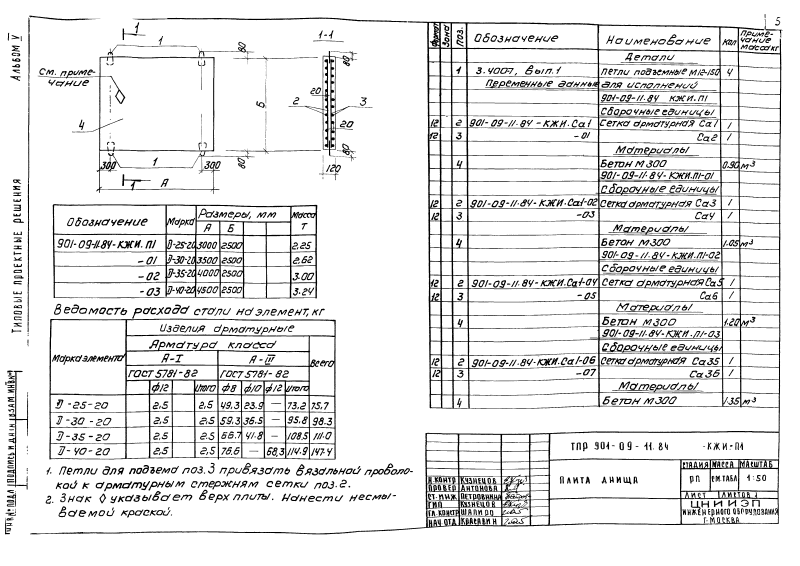 5
Альбом V
Типовые проектные решения
1
1
1-1
80
80
См. приме-
чание
4
Б
2
20
3
20
80
80
1
300
300
120
1
А
Обозначение
Марка
Размеры, мм
Масса
Т
А
Б
901-09-11.84-КЖИ.П1 П-25-20 3000 2500 2.25
-01 П-30-20 3500 2500 2.62
-02 П-35-20 4000 2500 3.00
-03 П-40-20 4500 2500 3.24
Ведомость расхода стали на элемент, кг
Марка элемента
Изделия арматурные
Арматура класса
Всего
А-I
А-III
ГОСТ 5781-82
ГОСТ 5781-82
ф12 Итого ф8 ф10 ф12 Итого
П-25-20 2,5 2,5 49,3 23,9 — 73,2 75,7
П-30-20 2,5 2,5 59,3 36,5 — 95,8 98.3
П-35-20 2,5 2,5 66.7 41.8 — 108,5 111.0
П-40-20 2,5 2,5 76,6 — 68,3 114.9 147.4
1. Петли для подъема поз. 3 привязать вязальной проволо-
кой к арматурным стержням сетки поз. 2.
2. Знак ◊ указывает верх плиты. Нанести несмы-
ваемой краской.
Формат
Зона
Поз.
Обозначение
Наименование
Кол
Приме-
чание
масса кг
Детали
1 3.400-7, Вып. 1 Петли подъемные М12-150 4
Переменные данные для исполнений
901-09-11.84 КЖИ.П1
Сборочные единицы
12 2 901-09-11.84-КЖИ.Са1 Сетка арматурная Са1 1
12 3 -01 Са2 1
Материалы
4 Бетон М300 0.90 м³
901-09-11.84-КЖИ.П1-01
Сборочные единицы
12 2 901-09-11.84-КЖИ.Са1-02 Сетка арматурная Са3 1
12 3 -03 Са4 1
Материалы
4 Бетон М300 1.05 м³
901-09-11.84-КЖИ.П1-02
Сборочные единицы
12 2 901-09-11.84-КЖИ.Са1-04 Сетка арматурная Са5 1
12 3 -05 Са6 1
Материалы
4 Бетон М300 1.20 м³
901-09-11.84-КЖИ.П1-03
Сборочные единицы
12 2 901-09-11.84-КЖИ.Са1-06 Сетка арматурная Са35 1
12 3 -07 Са36 1
Материалы
4 Бетон М300 1.35 м³
ТПР 901-09-11.84 -КЖИ-П1
Н.контр Кузнецов
Провер Антонова
Ст-инж Петровнина
ГИП Кузнецов
Гл.констр Шапиро
Нач отд Красавин
Плита днища
Стадия Масса Масштаб
РП см.табл 1:50
Лист Листов 1
ЦНИИЭП
инженерного оборудования
г-Москва